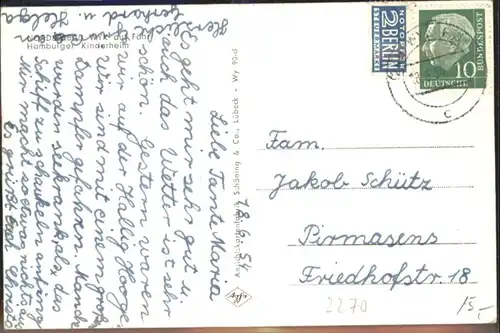 Wyk auf Föhr
Hamburger Kinderheim
18.6.54
Liebe Tante Maria
Es geht mir sehr gut u.
auch das Wetter ist sehr
schön. Gestern waren
wir auf der Hallig Hooge.
Wir sind mit einem groß.
Dampfer gefahren. Manche
wurden seekrank, als das
Schiff zu schaukeln anfing.
Nur machte
Es grüßt Euch
Herzl.
Gerhard u. Helga
Ansichtskartenfabrik Schöning & Co., Lübeck · Wy 90-d
NOTOPFER
2 BERLIN
STEUERMARKE
10
DEUTSCHE
BUNDESPOST
c
Fam.
Jakob Schütz
Pirmasens
Friedhofstr. 18
2270
15,-